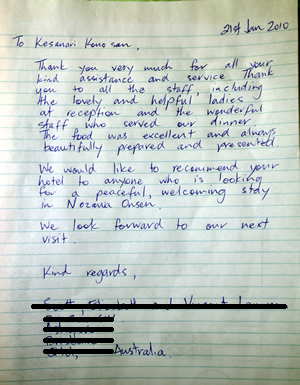 21st Jan 2010
To Kesanari Kono san,
Thank you very much for all your
kind assistance and service. Thank
you to all the staff, including
the lovely and helpful ladies
at reception and the wonderful
staff who served our dinner.
The food was excellent and always
beautifully prepared and presented.
We would like to recommend your
hotel to anyone who is looking
for a peaceful, welcoming stay
in Nozawa Onsen.
We look forward to our next
visit.
Kind regards,
Australia.